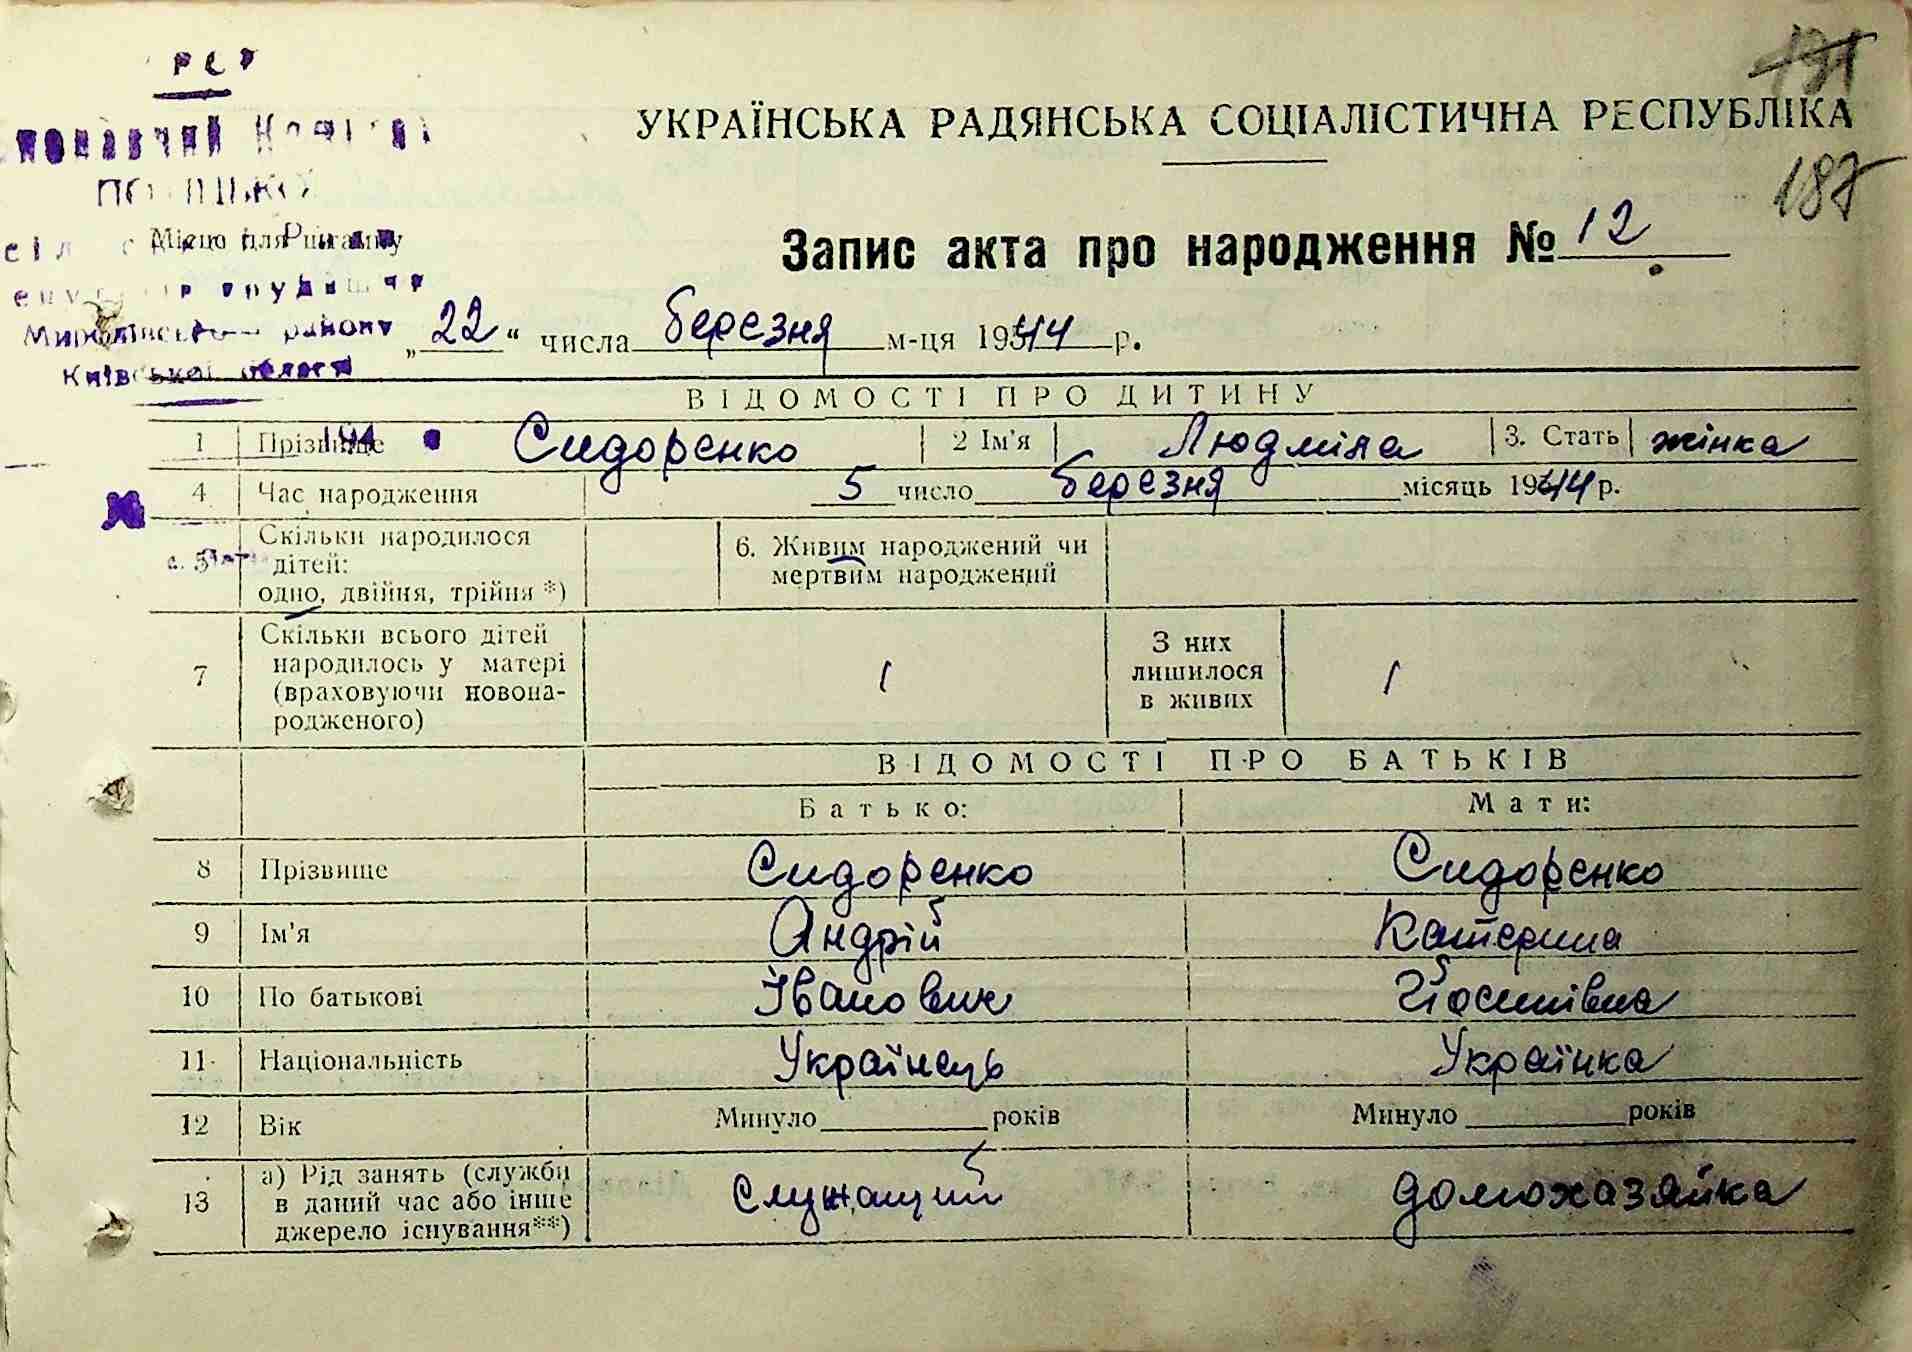 191
УКРАЇНСЬКА РАДЯНСЬКА СОЦІАЛІСТИЧНА РЕСПУБЛІКА
187
Місце для штампу
району
Київської області
194
Запис акта про народження № 12
„22“ числа березня м-ця 1944 р.
ВІДОМОСТІ ПРО ДИТИНУ
1 Прізвище Сидоренко 2 Ім'я Людміла 3. Стать жінка
4 Час народження 5 число березня місяць 1944 р.
5 Скільки народилося
дітей:
одно, двійня, трійня *)
6. Живим народжений чи
мертвим народжений
7 Скільки всього дітей
народилось у матері
(враховуючи новона-
родженого)
1
З них
лишилося
в живих
1
ВІДОМОСТІ ПРО БАТЬКІВ
Батько: Мати:
8 Прізвище Сидоренко Сидоренко
9 Ім'я Андрій Катерина
10 По батькові Івановик Йосипівна
11 Національність Українець Українка
12 Вік Минуло ______ років Минуло ______ років
13 а) Рід занять (служби
в даний час або інше
джерело існування**)
Служащий домохазяйка